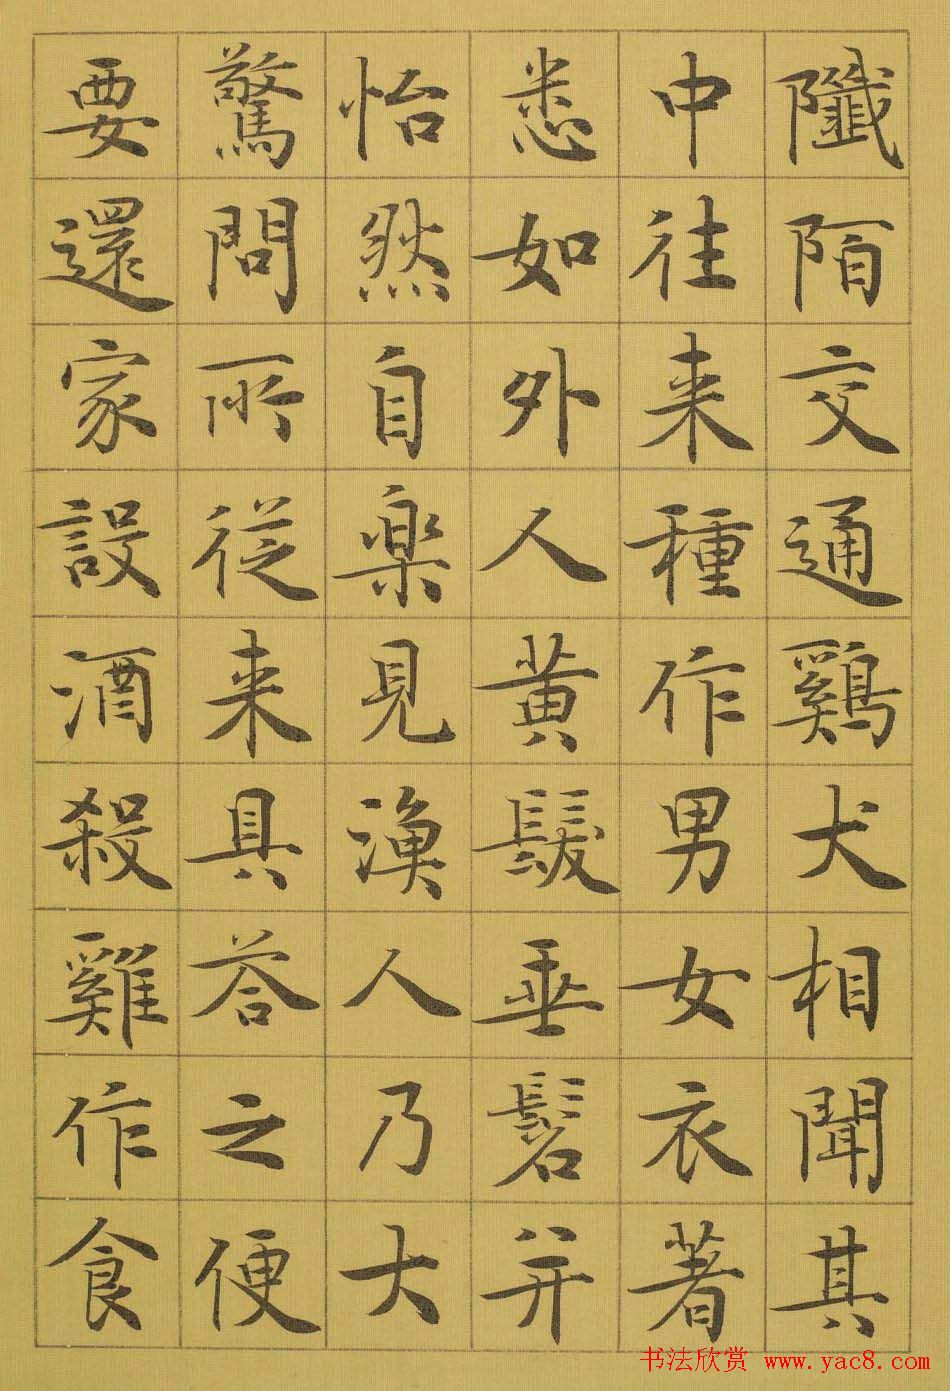 陌交通鷄犬相聞其
中往来種作男女衣著
悉如外人黄髮垂髫并
怡然自楽見漁人乃大
驚問所從来具荅之便
要還家設酒殺雞作食
书法欣赏 www.yac8.com